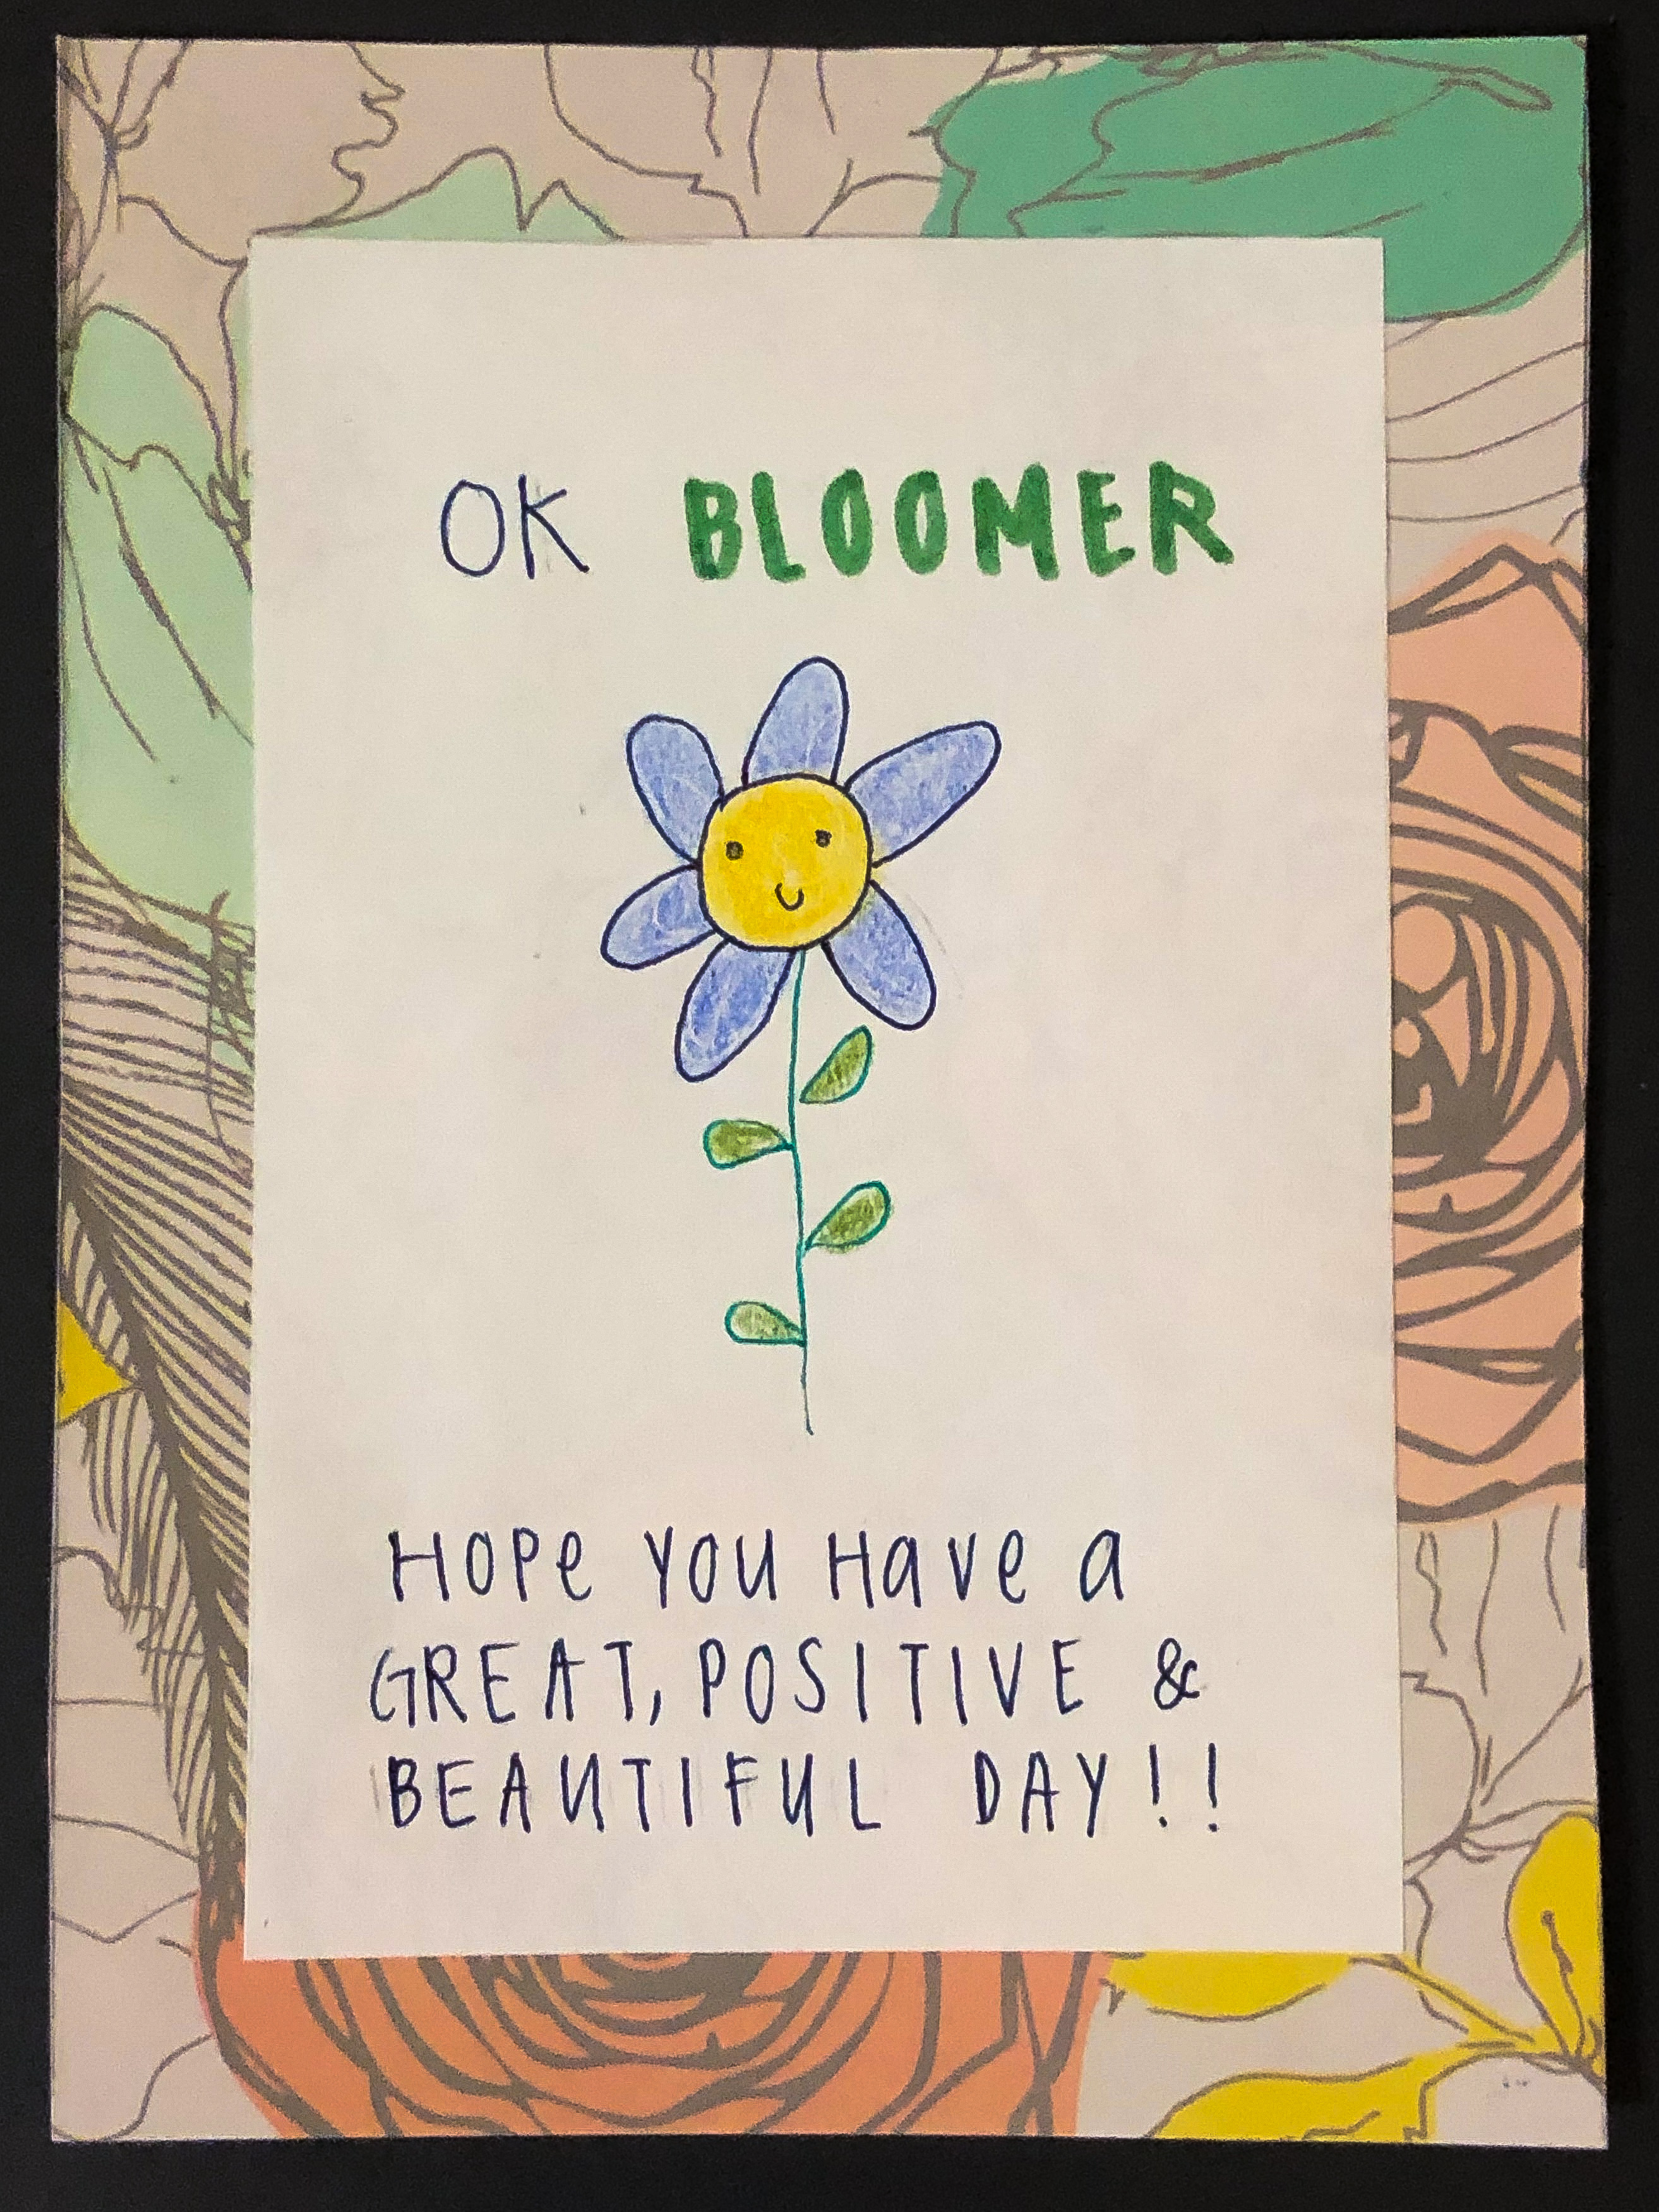 OK BLOOMER
HOPe YOU Have a
GREAT, POSITIVE &
BEAUTIFUL DAY!!